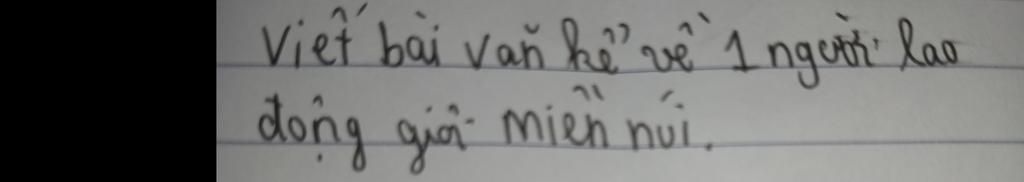 Viết bài văn kể về 1 người lao
động giỏi miền núi.